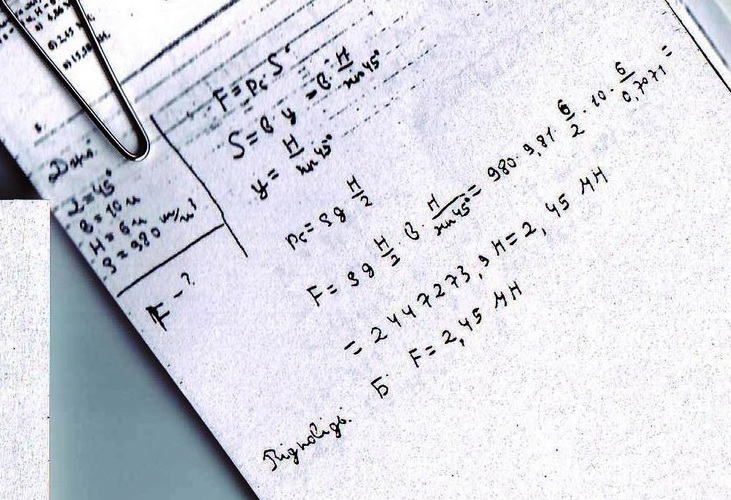 б) 2.45 М
Дано:
α = 45°
B = 10 м
H = 6 м
ρ = 980 кг/м³
F - ?
F = Pc S
S = B y = B · H / sin 45°
y = H / sin 45°
Pc = ρg H/2
F = ρg H/2 B · H / sin 45° = 980 · 9,81 · 6/2 · 10 · 6 / 0,7071 =
= 2447273,9 H = 2,45 MH
Б. F = 2,45 MH